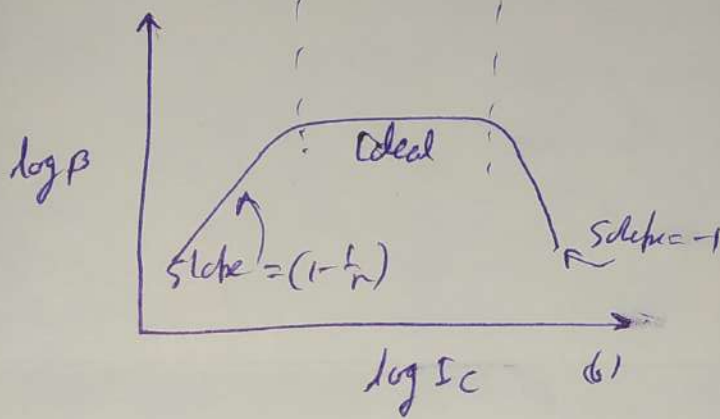 log β
Ideal
Slope = (1 - 1/n)
Slope = -1
log IC
(b)